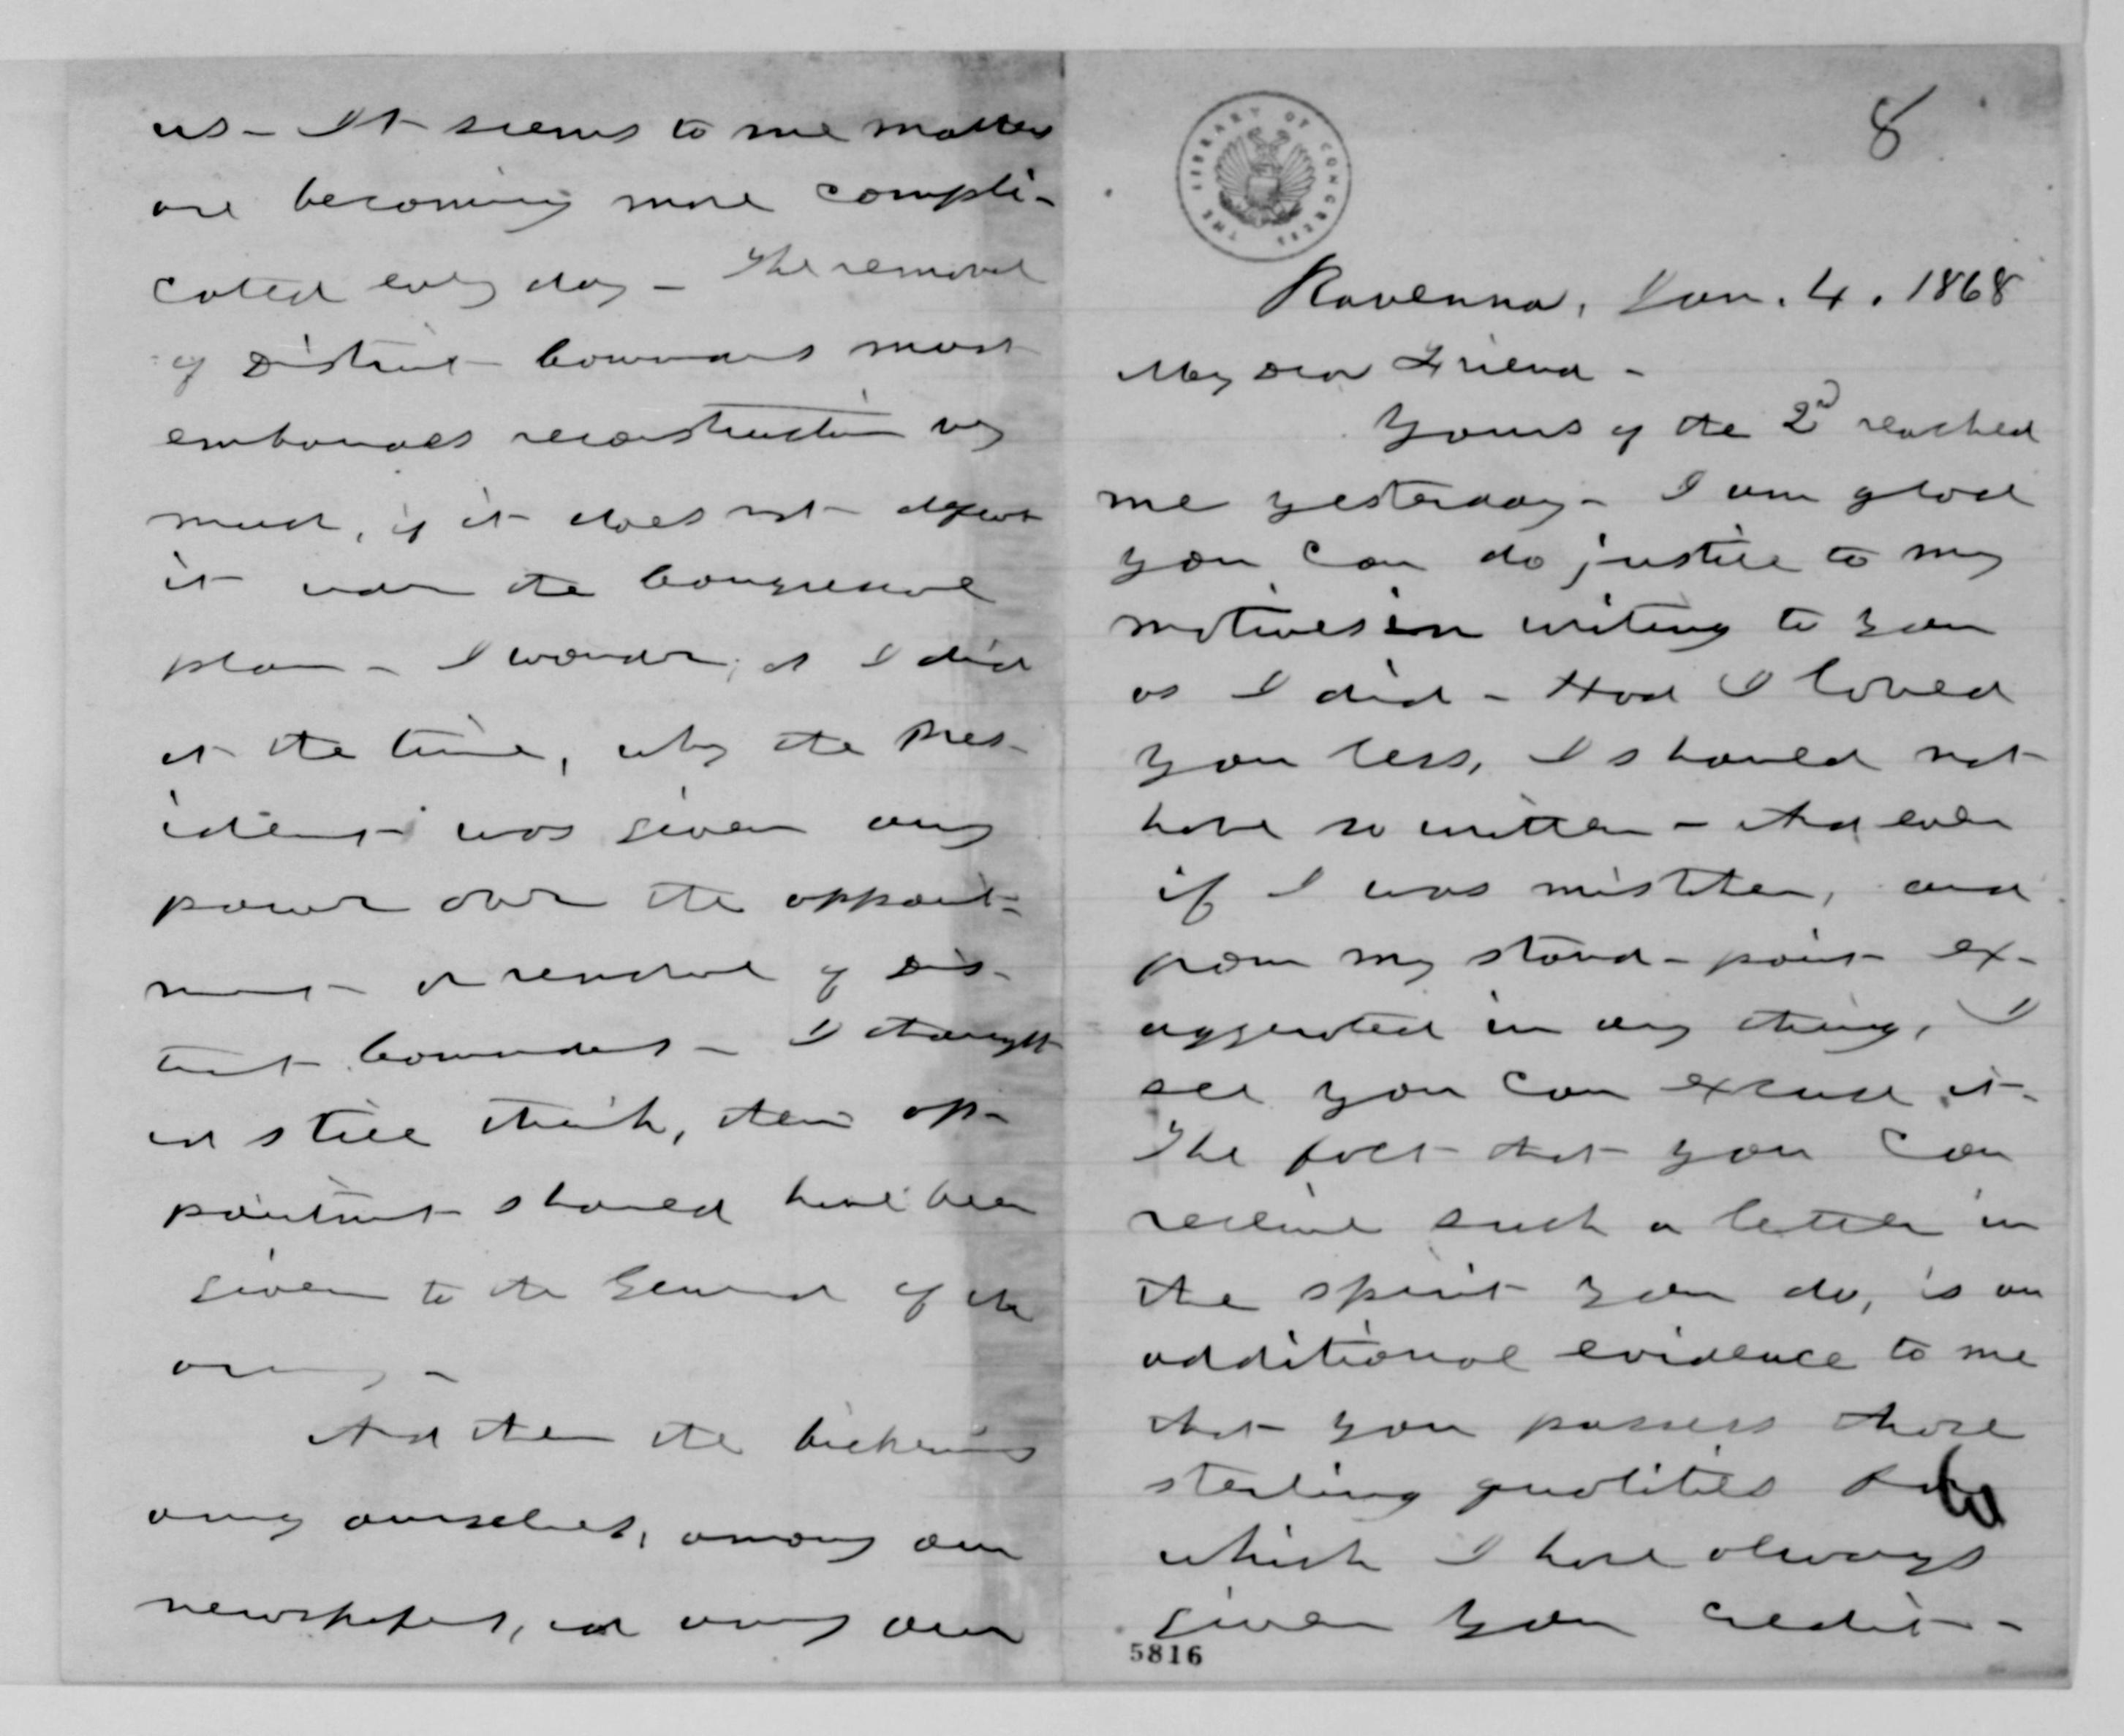 8
THE LIBRARY OF CONGRESS
Ravenna, Jan. 4. 1868
My Dear Friend -
Yours of the 2d reached
me yesterday - I am glad
you can do justice to my
motives in writing to you
as I did - Had I loved
you less, I should not
have so written - And even
if I was mistaken, and
from my stand-point ex-
aggerated in any thing, I
see you can excuse it -
The fact that you can
receive such a letter in
the spirit you do, is an
additional evidence to me
that you possess those
sterling qualities for
which I have always
given you credit -
5816
us - It seems to me matters
are becoming more compli-
cated every day - The removal
of District Commanders must
embarrass reconstruction very
much, if it does not defeat
it under the Congressional
plan - I wonder, as I did
at the time, why the Pres-
ident was given any
power over the appoint-
ment or removal of Dis-
trict Commanders - I thought
and still think, their ap-
pointment should have been
given to the General of the
army -
And then the bickerings
among ourselves, among our
newspapers, and among our